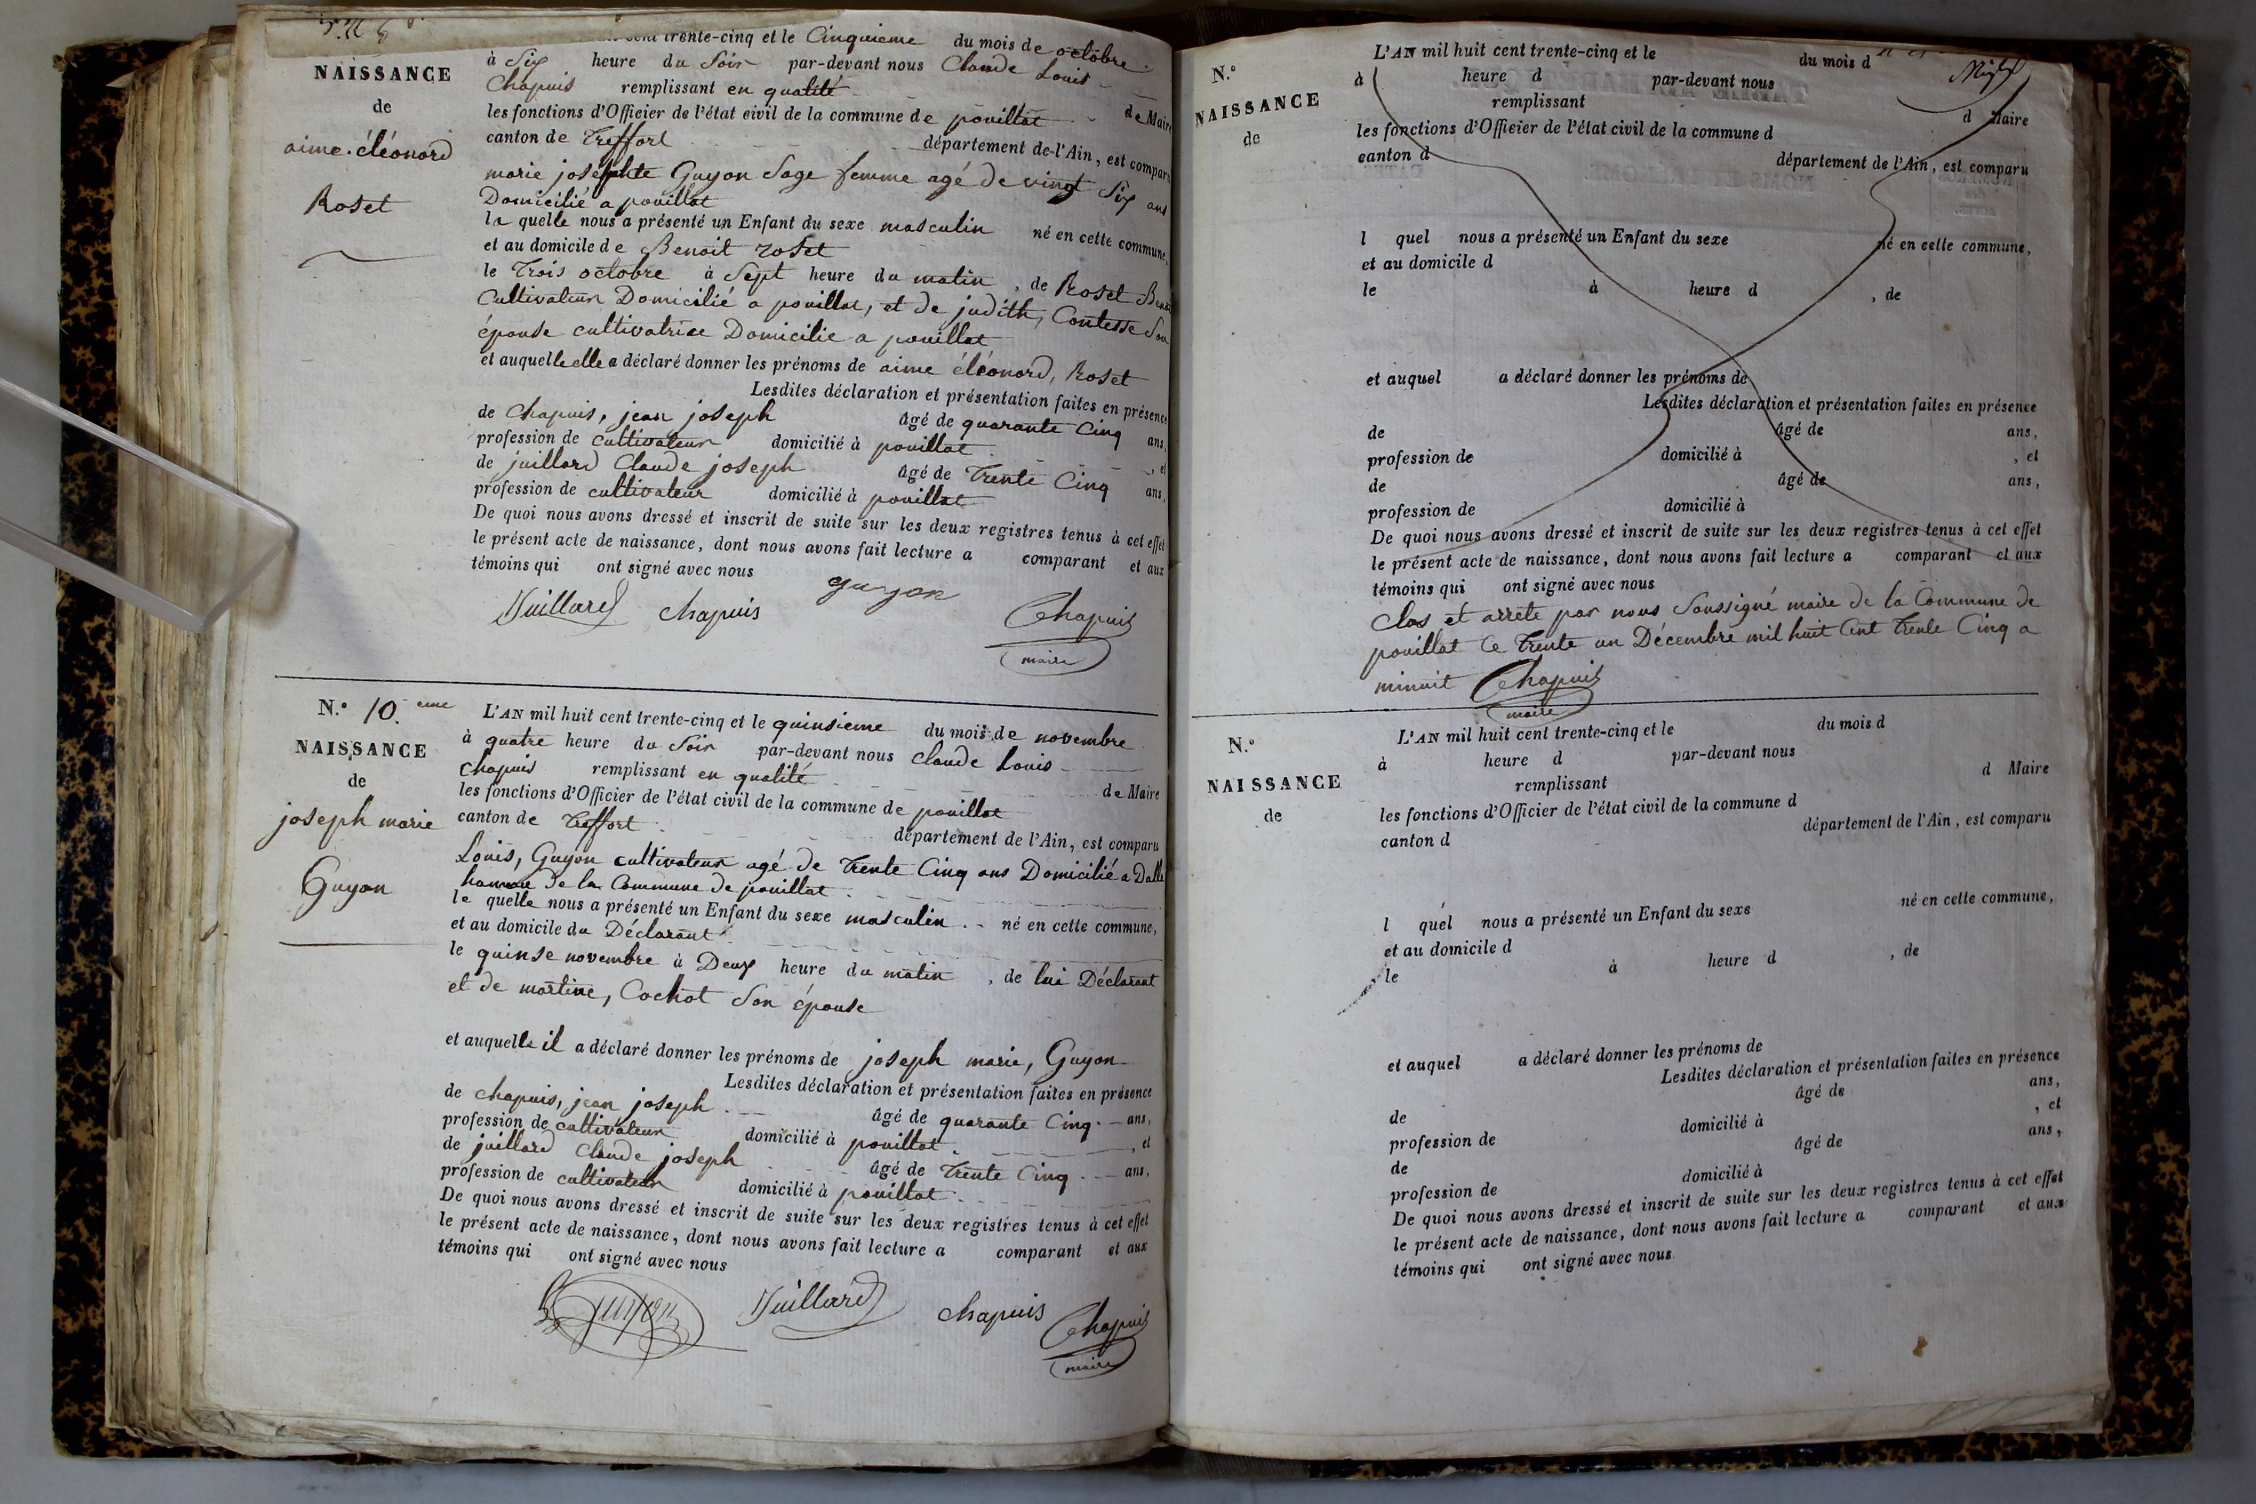 cent trente-cinq et le Cinquieme du mois de octobre
NAISSANCE
de
aimé éléonord
Roset
à Six heure du Soir par-devant nous Claude Louis
Chapuis remplissant en qualité
les fonctions d'Officier de l'état civil de la commune de pouillat de Maire
canton de Treffort département de l'Ain, est comparu
marie josephte Guyon Sage femme agé de vingt Six ans
Domicilié a pouillat
la quelle nous a présenté un Enfant du sexe masculin né en cette commune,
et au domicile de Benoit roset
le Trois octobre à Sept heure du matin, de Roset
Cultivateur Domicilié a pouillat, et de judith, Contesse Son
épouse cultivatrice Domicilie a pouillat
et auquelle elle a déclaré donner les prénoms de aime éléonord, Roset
Lesdites déclaration et présentation faites en présence
de Chapuis, jean joseph âgé de quarante Cinq ans,
profession de cultivateur domicilié à pouillat, et
de juillard Claude joseph âgé de Trente Cinq ans,
profession de cultivateur domicilié à pouillat
De quoi nous avons dressé et inscrit de suite sur les deux registres tenus à cet effet
le présent acte de naissance, dont nous avons fait lecture a comparant et aux
témoins qui ont signé avec nous
Juillard chapuis guyon Chapuis
maire
N.° 10.eme
NAISSANCE
de
joseph marie
Guyon
L'AN mil huit cent trente-cinq et le quinsieme du mois de novembre
à quatre heure du Soir par-devant nous Claude Louis
Chapuis remplissant en qualité
les fonctions d'Officier de l'état civil de la commune de pouillat de Maire
canton de Treffort département de l'Ain, est comparu
Louis, Guyon cultivateur agé de Trente Cinq ans Domicilié a Dalle
hameau de la Commune de pouillat
le quelle nous a présenté un Enfant du sexe masculin né en cette commune,
et au domicile du Déclarant
le quinse novembre à Deux heure du matin, de lui Déclarant
et de martine, Cochot Son épouse
et auquelle il a déclaré donner les prénoms de joseph marie, Guyon
Lesdites déclaration et présentation faites en présence
de chapuis, jean joseph âgé de quarante Cinq ans,
profession de cultivateur domicilié à pouillat, et
de juillard Claude joseph âgé de Trente Cinq ans,
profession de cultivateur domicilié à pouillat
De quoi nous avons dressé et inscrit de suite sur les deux registres tenus à cet effet
le présent acte de naissance, dont nous avons fait lecture a comparant et aux
témoins qui ont signé avec nous
guyon Juillard chapuis Chapuis
maire
N.°
NAISSANCE
de
L'AN mil huit cent trente-cinq et le du mois d
à heure d par-devant nous
remplissant d Maire
les fonctions d'Officier de l'état civil de la commune d
canton d département de l'Ain, est comparu
l quel nous a présenté un Enfant du sexe né en cette commune,
et au domicile d
le à heure d , de
et auquel a déclaré donner les prénoms de
Lesdites déclaration et présentation faites en présence
de âgé de ans,
profession de domicilié à , et
de âgé de ans,
profession de domicilié à
De quoi nous avons dressé et inscrit de suite sur les deux registres tenus à cet effet
le présent acte de naissance, dont nous avons fait lecture a comparant et aux
témoins qui ont signé avec nous
Clos et arrete par nous Soussigné maire de la Commune de
pouillat le Trente un Décembre mil huit Cent Trente Cinq a
minuit Chapuis
maire
N.°
NAISSANCE
de
L'AN mil huit cent trente-cinq et le du mois d
à heure d par-devant nous
remplissant d Maire
les fonctions d'Officier de l'état civil de la commune d
canton d département de l'Ain, est comparu
l quel nous a présenté un Enfant du sexe né en cette commune,
et au domicile d
le à heure d , de
et auquel a déclaré donner les prénoms de
Lesdites déclaration et présentation faites en présence
de âgé de ans,
profession de domicilié à , et
de âgé de ans,
profession de domicilié à
De quoi nous avons dressé et inscrit de suite sur les deux registres tenus à cet effet
le présent acte de naissance, dont nous avons fait lecture a comparant et aux
témoins qui ont signé avec nous